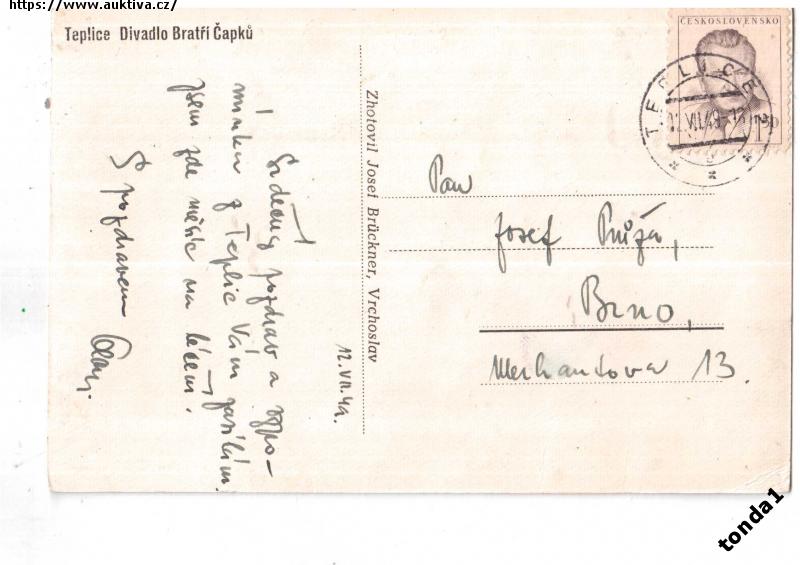 https://www.auktiva.cz/
Teplice Divadlo Bratří Čapků
ČESKOSLOVENSKO
TEPLICE
12.VII.49-13
Zhotovil Josef Brückner, Vrchoslav
12.VII.49.
Srdečný pozdrav a vzpo-
mínku z Teplic Vám zasílám.
jsem zde měsíc na léčení.
S pozdravem
Pan
Josef Růža,
Brno,
Merhautova 13.
tonda1